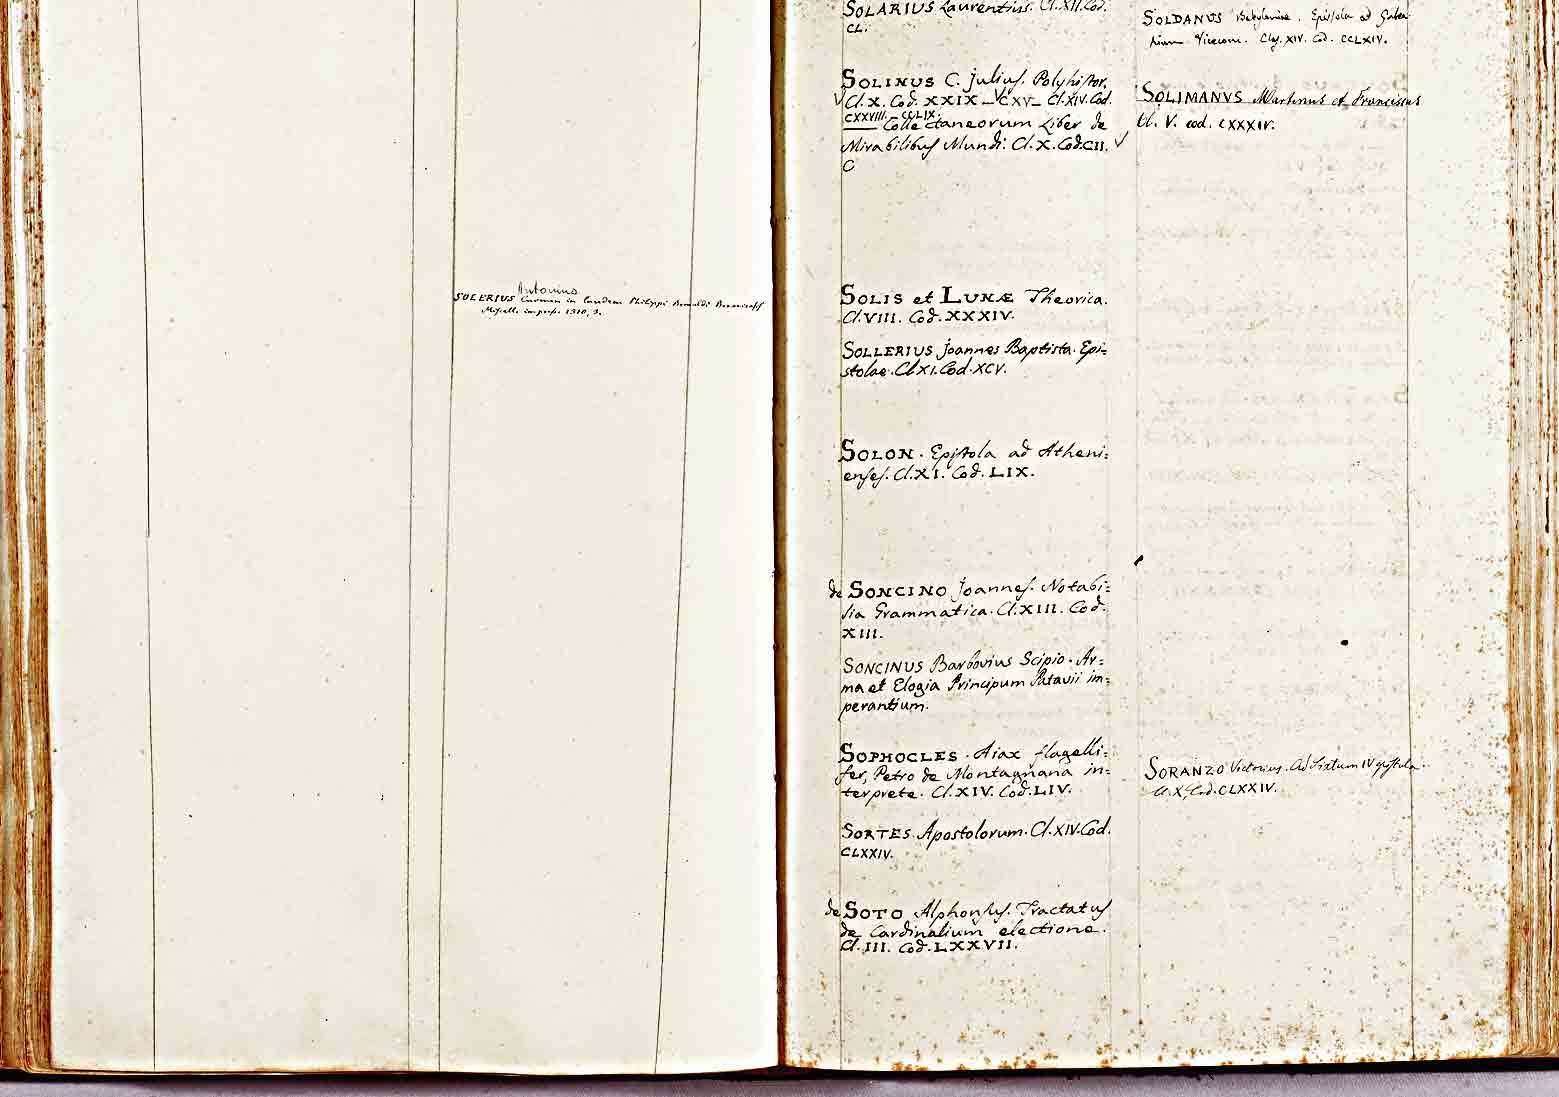 Antonius
SOLERIUS Carmen in laudem Philippi Beroaldi
Miscell. impress. 1310, 3.
SOLARIUS Laurentius. Cl. XII. Cod.
CL.
SOLINUS C. Julius. Polyhistor.
Cl. X. Cod. XXIX – CXV – Cl. XIV. Cod.
CXXVIII. – CCLIX.
—— Collectaneorum Liber de
Mirabilibus Mundi: Cl. X. Cod. CII.
C
SOLIS et LUNÆ Theorica.
Cl. VIII. Cod. XXXIV.
SOLLERIUS Joannes Baptista. Epi=
stolae. Cl. XI. Cod. XCV.
SOLON. Epistola ad Atheni=
enses. Cl. XI. Cod. LIX.
de SONCINO Joannes. Notabi=
lia Grammatica. Cl. XIII. Cod.
XIII.
SONCINUS Barbovius Scipio. Ar=
ma et Elogia Principum Patavii im=
perantium.
SOPHOCLES. Aiax flagelli=
fer, Petro de Montagnana in=
terprete. Cl. XIV. Cod. LIV.
SORTES Apostolorum. Cl. XIV. Cod.
CLXXIV.
de SOTO Alphonsus. Tractatus
de Cardinalium electione.
Cl. III. Cod. LXXVII.
SOLDANUS Babyloniae. Epistola ad
Vicecom. Clas. XIV. Cod. CCLXIV.
SOLIMANVS Martinus et Franciscus
Cl. V. cod. CXXXIV.
SORANZO Victorius. Ad Sixtum IV epistola.
Cl. X, Cod. CLXXIV.